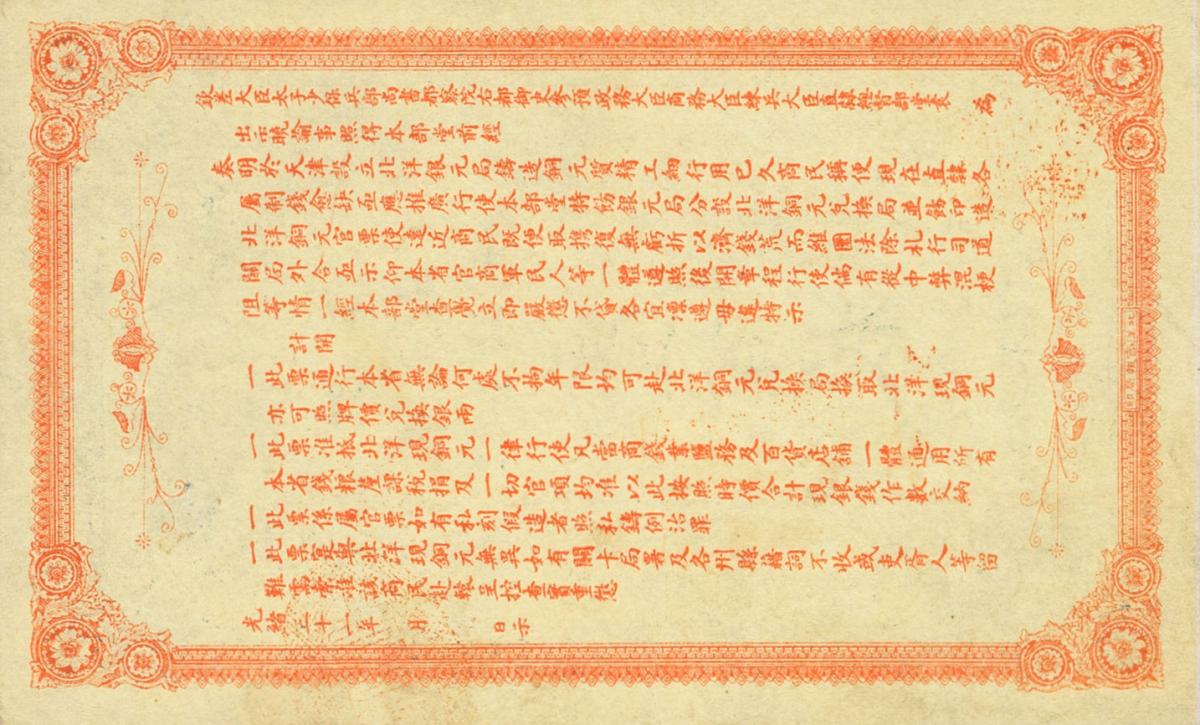 欽差大臣太子少保兵部尚書都察院右都御史參預政務大臣商務大臣練兵大臣直隸總督部堂袁 為
出示曉諭事照得本部堂前經
奏明於天津設立北洋銀元局鑄造銅元質精工細行用已久商民稱便現在直隸各
屬制錢愈缺亟應推廣行使本部堂特飭銀元局分設北洋銅元兌換局並飭印造
北洋銅元官票使遠近商民既便取攜復無虧折以濟錢荒而維圜法除札行司道
關局外合亟示仰本省官商軍民人等一體遵照後開章程行使倘有從中弊混梗
阻等情一經本部堂查覺立即嚴懲不貸各宜凜遵毋違特示
計開
一此票通行本省無論何處不拘年限均可赴北洋銅元兌換局換取北洋現銅元
亦可照牌價兌換銀兩
一此票准抵北洋現銅元一律行使凡當商錢業鹽務及百貨店舖一體通用所有
本省錢糧釐課稅捐及一切官項均准以此按照時價合計現銀錢作數交納
一此票係屬官票如有私刻假造者照私鑄例治罪
一此票寔與北洋現銅元無異如有關卡局署及各州縣藉詞不收或吏胥人等留
難需索准該商民赴轅呈控查實重懲
光緒三十一年 月 日示